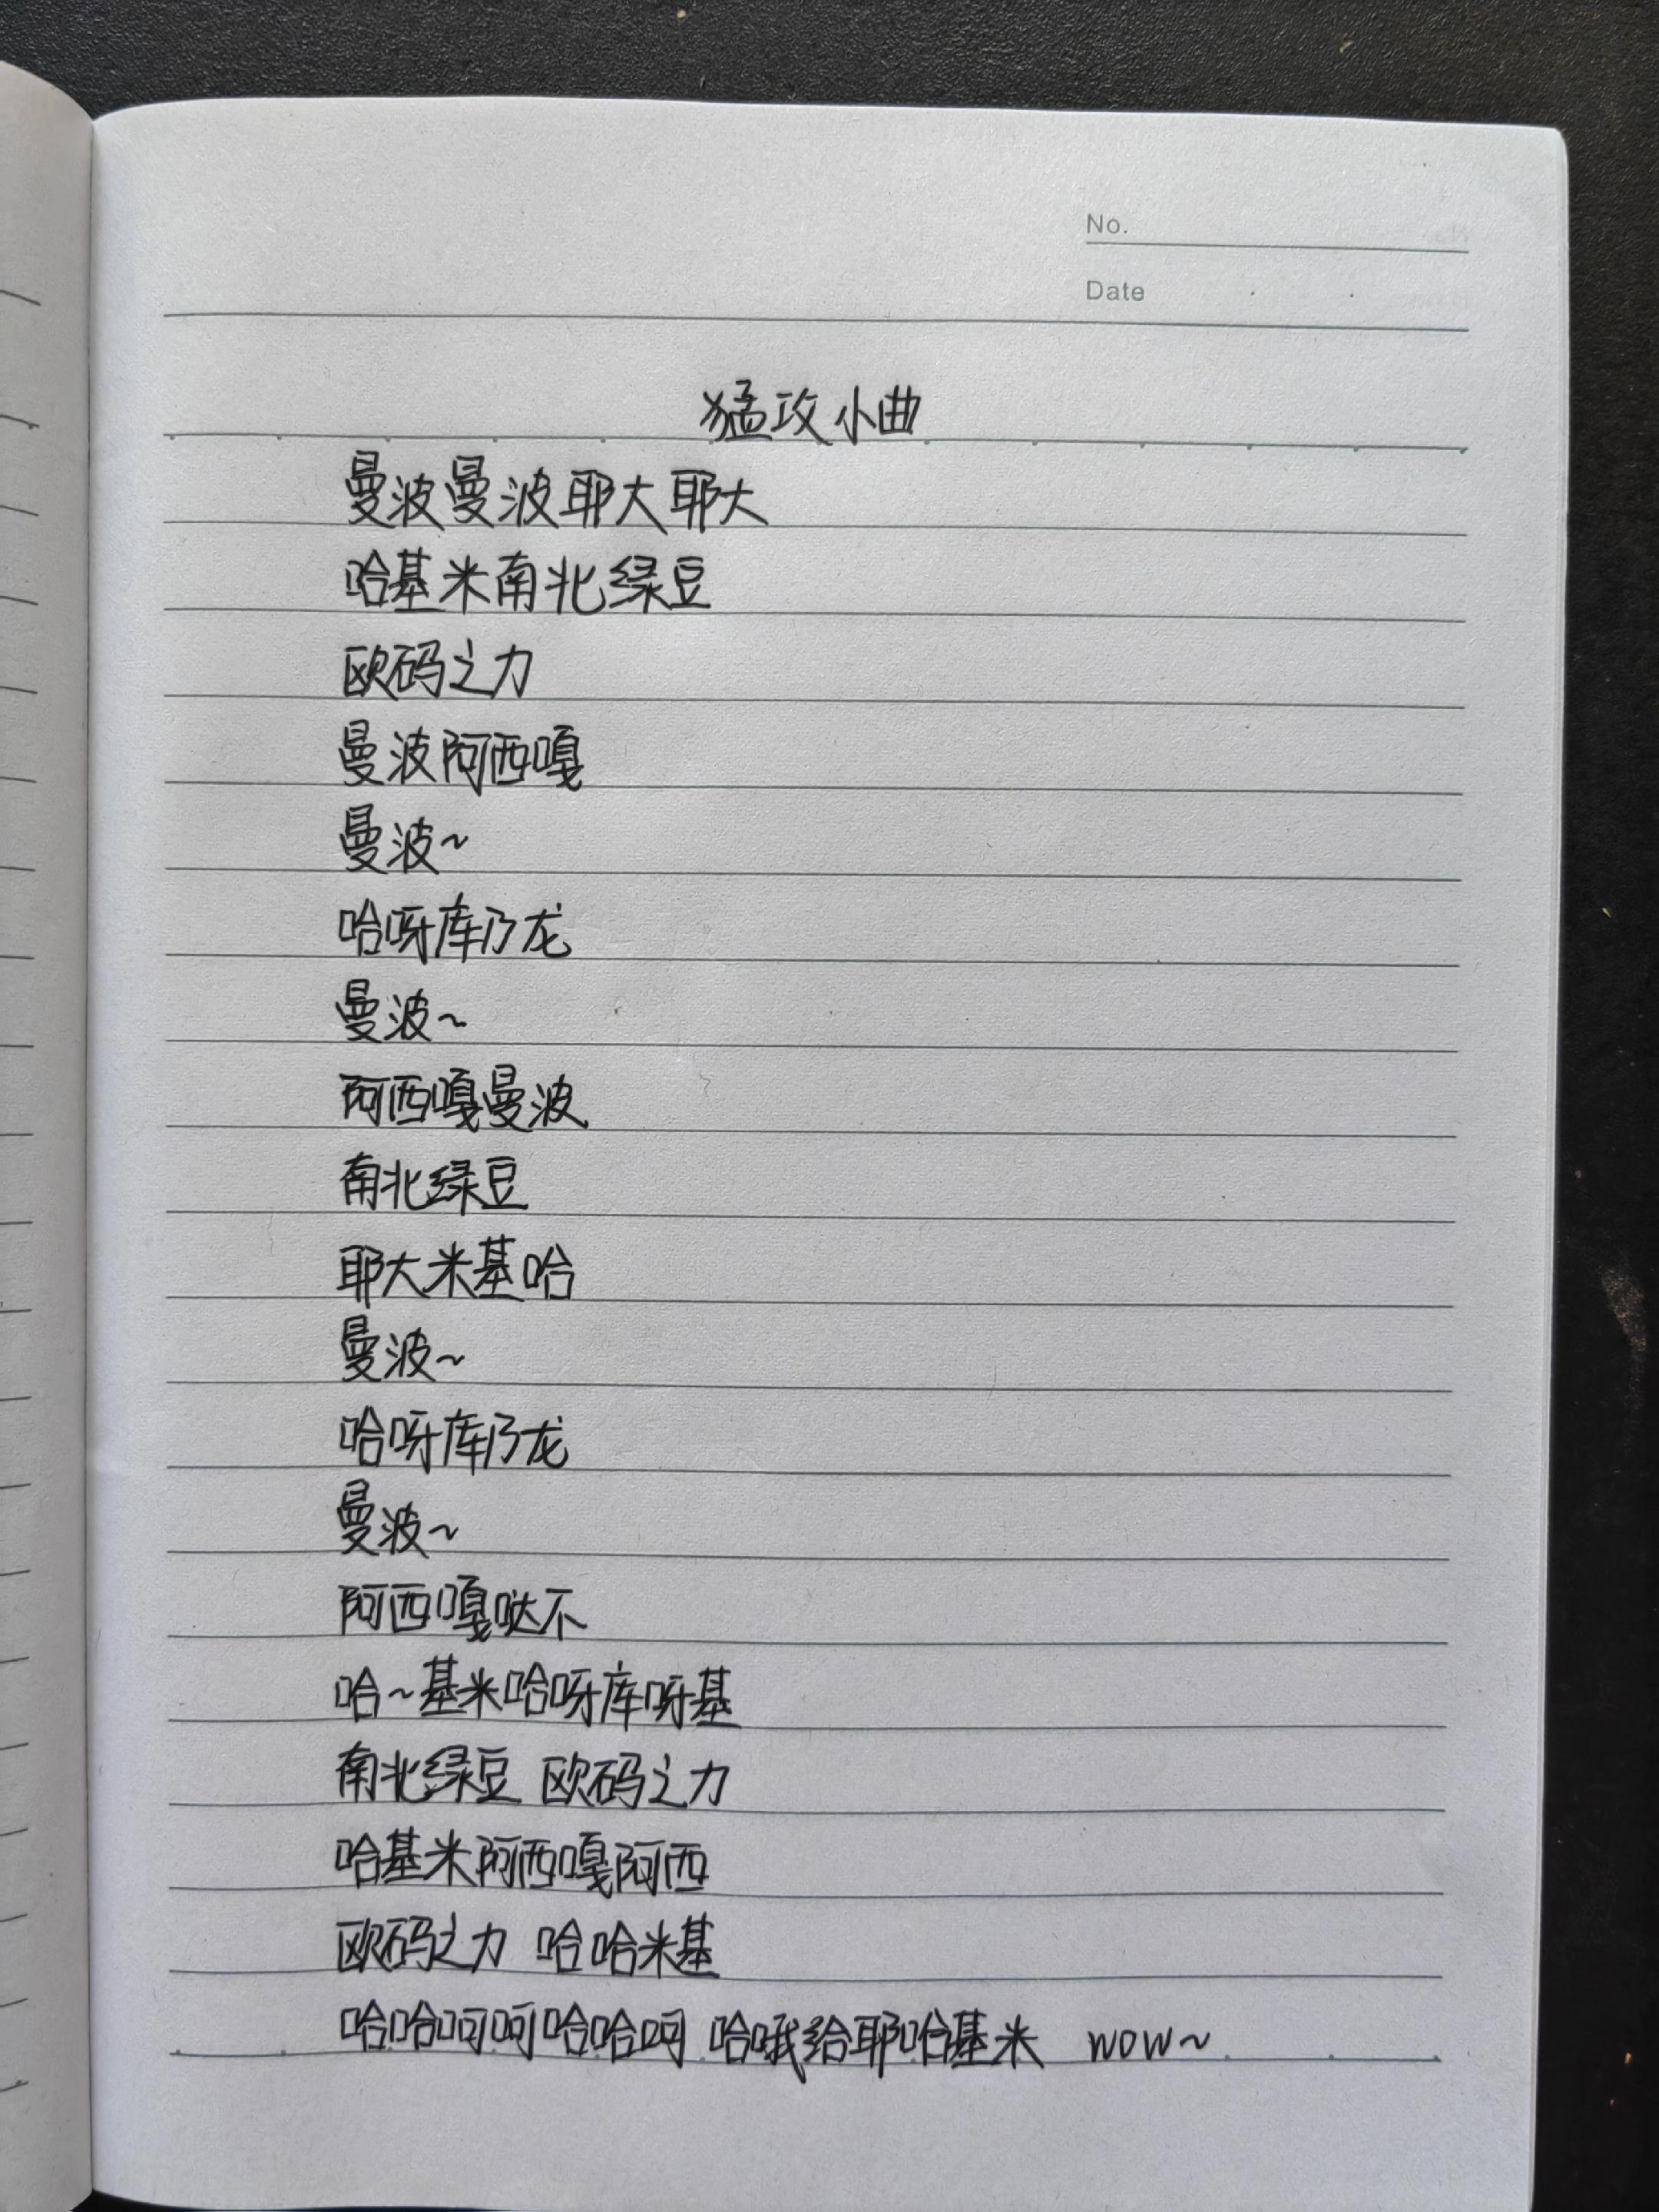 No.
Date
猛攻小曲
曼波曼波耶大耶大
哈基米南北绿豆
欧码之力
曼波阿西嘎
曼波~
哈呀库乃龙
曼波~
阿西嘎曼波
南北绿豆
耶大米基哈
曼波~
哈呀库乃龙
曼波~
阿西嘎哒不
哈~基米哈呀库呀基
南北绿豆 欧码之力
哈基米阿西嘎阿西
欧码之力 哈哈米基
哈哈呵呵哈哈呵 哈哦给耶哈基米 wow~